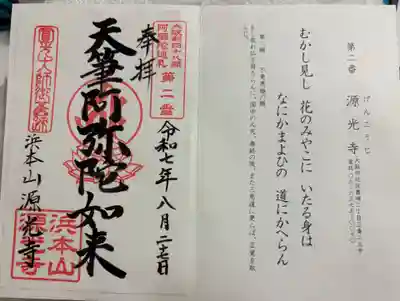 第二番 源光寺
げんこうじ
むかし見し 花のみやこに いたる身は
なにかまよひの 道にかへらん
奉拝
大阪新四十八願
阿弥陀巡礼
第二番
天筆阿弥陀如来
令和七年八月二十七日
圓光大師御旧跡
浜本山源光寺
浜本山
源光寺